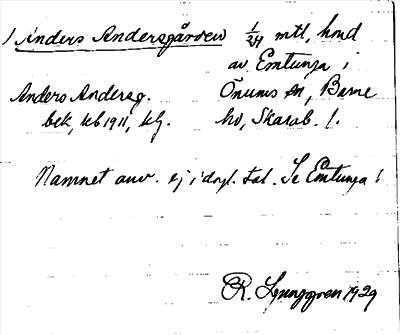 / Anders Andersgården 1/24 mtl, hmd
av Emtunga i
Anders Andersg. Önums sn, Barne
bek, kb 1911, kg. hd, Skarab. l.
Namnet anv. ej i dagl. tal. Se Emtunga!
R. Ljunggren 1929